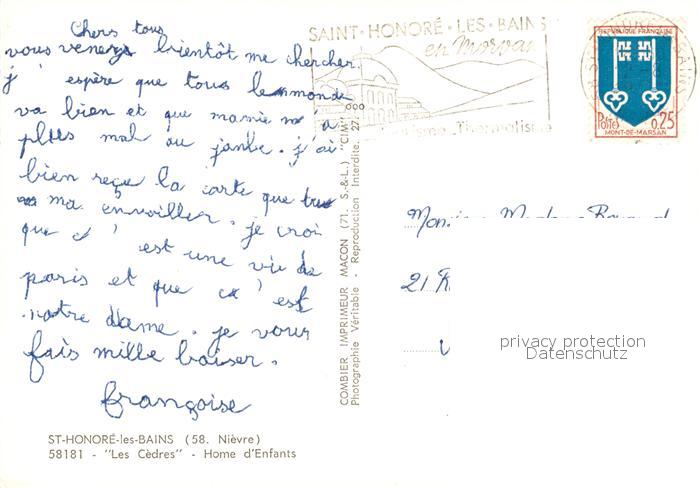 Chers tous
vous venez bientôt me chercher.
j' espère que tous le monde
va bien et que mamie n'a
plus mal au jambe. j'ai
bien reçu la carte que tu
ma envoiller. je croi
que c' est une vue de
paris et que ca' est
notre dame. je vous
fais mille baiser.
françoise
ST-HONORÉ-les-BAINS (58. Nièvre)
58181 - "Les Cèdres" - Home d'Enfants
COMBIER IMPRIMEUR MACON (71. S.-&-L.) "CIM"
Photographie Véritable - Reproduction Interdite. 27.
SAINT-HONORÉ-LES-BAINS
en Morvan
Thermalisme
REPUBLIQUE FRANÇAISE
Postes 0,25
MONT-DE-MARSAN
Monsieur
21
privacy protection
Datenschutz